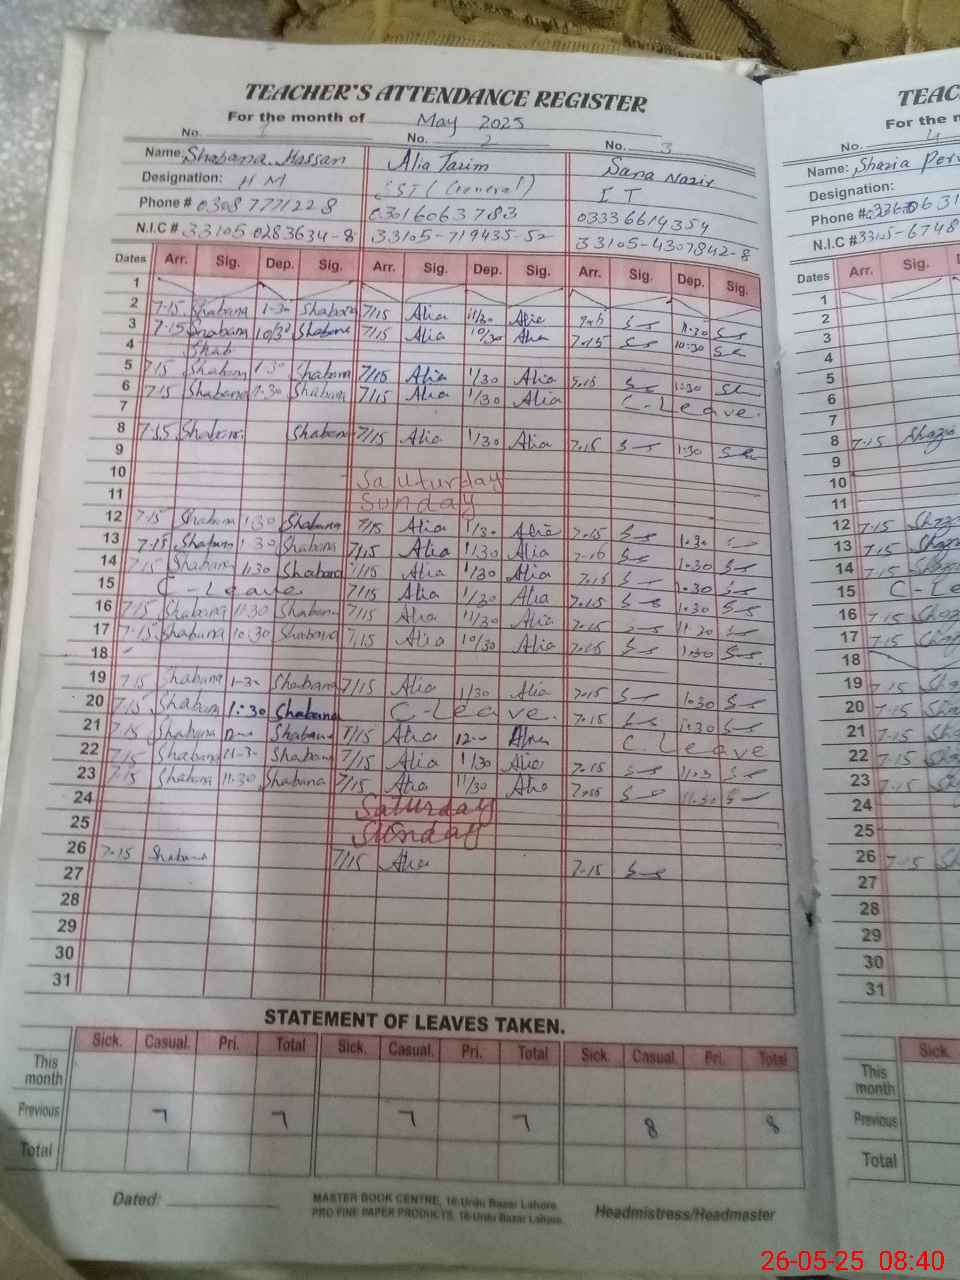 TEACHER'S ATTENDANCE REGISTER
For the month of May 2025
No. 1 No. 2 No. 3
Name: Shabana Hassan Alia Tasim Sana Nazir
Designation: H M SST (General) I T
Phone # 03087771228 03016063783 03336614354
N.I.C # 33105 0283634-8 33105-719435-52 33105-4307842-8
Dates Arr. Sig. Dep. Sig. Arr. Sig. Dep. Sig. Arr. Sig. Dep. Sig.
1
2 7-15 Shabana 1-30 Shabana 7/15 Alia 11/30 Alia 11:30
3 7-15 Shabana 10/30 Shabana 7/15 Alia 10/30 Alia 7-15 10:30
4 Shab
5 7-15 Shabana 1-30 Shabana 7/15 Alia 1/30 Alia 1:30
6 7-15 Shabana 1-30 Shabana 7/15 Alia 1/30 Alia C-Leave.
7
8 7-15 Shabana Shabana 7/15 Alia 1/30 Alia 7-15 1:30
9
10 Sauturday
11 Sunday
12 7-15 Shabana 1:30 Shabana 7/15 Alia 1/30 Alia 7-15 1-30
13 7-15 Shabana 1 30 Shabana 7/15 Alia 1/30 Alia 7-15 1-30
14 7-15 Shabana 1:30 Shabana 7/15 Alia 1/30 Alia 7-15 1-30
15 C-Leave 7/15 Alia 1/30 Alia 7-15 1:30
16 7-15 Shabana 11:30 Shabana 7/15 Alia 11/30 Alia 7-15
17 7-15 Shabana 10:30 Shabana 7/15 Alia 10/30 Alia 7-15
18
19 7-15 Shabana 1-30 Shabana 7/15 Alia 1/30 Alia 7-15 1-30
20 7-15 Shabana 1:30 Shabana C-Leave. 7-15 1:30
21 7-15 Shabana Shabana 7/15 Alia 12-- Alia C.Leave
22 7/15 Shabana 11-3- Shabana 7/15 Alia 1/30 Alia 7-15
23 7-15 Shabana 11-30 Shabana 7/15 Alia 11/30 Alia 7-15 11-30
24 Saturday
25 Sunday
26 7-15 Shabana 7/15 Alia 7-15
27
28
29
30
31
STATEMENT OF LEAVES TAKEN.
Sick. Casual. Pri. Total Sick. Casual. Pri. Total Sick. Casual. Pri. Total
This month
Previous 7 7 7 7 8 8
Total
Dated:
MASTER BOOK CENTRE, 16-Urdu Bazar Lahore
PRO FINE PAPER PRODUCTS, 16-Urdu Bazar Lahore.
Headmistress/Headmaster
TEAC
For the m
No. 4
Name: Shazia Perv
Designation:
Phone #
N.I.C # 33105-6748
Dates Arr. Sig.
1
2
3
4
5
6
7
8 7-15 Shazia
9
10
11
12 7-15
13 7-15
14 7-15
15 C-Le
16 7-15
17 7-15
18
19 7-15
20 7-15
21 7-15
22 7-15
23 7-15
24
25
26 7-15
27
28
29
30
31
Sick
This month
Previous
Total
26-05-25 08:40